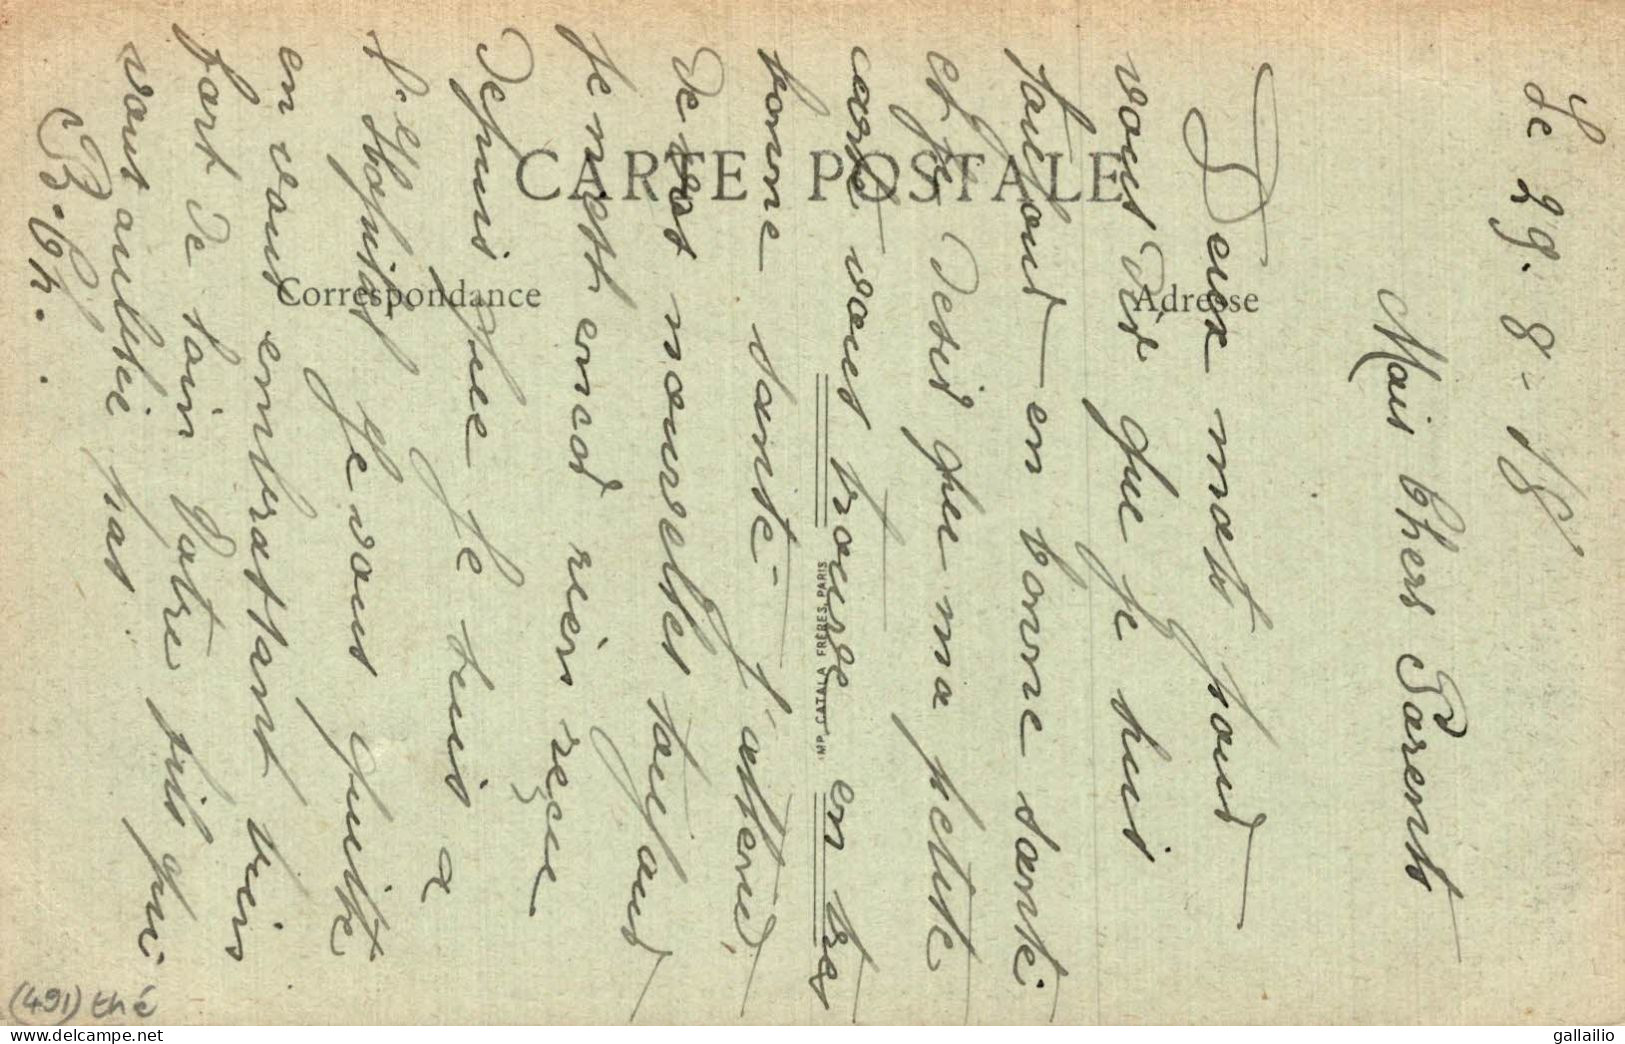 Le 29. 8 - 18
Mais Chers Parents
Deux mots pour
vous dir que je suis
toujours en bonne santé
et je desir que ma petite
carte vous trouve en tres
bonne santé j'attend
de vos nouvelles toujours
je n'est encor rien reçue
depuis que je suis a
l'Hopital je vous quitte
en vous embrassant bien
fort de loin Votre fils qui
vous oublie pas
B. Ch.
CARTE POSTALE
Correspondance
Adresse
IMP. CATALA FRÈRES, PARIS
(491) thé
gallailio
www.delcampe.net